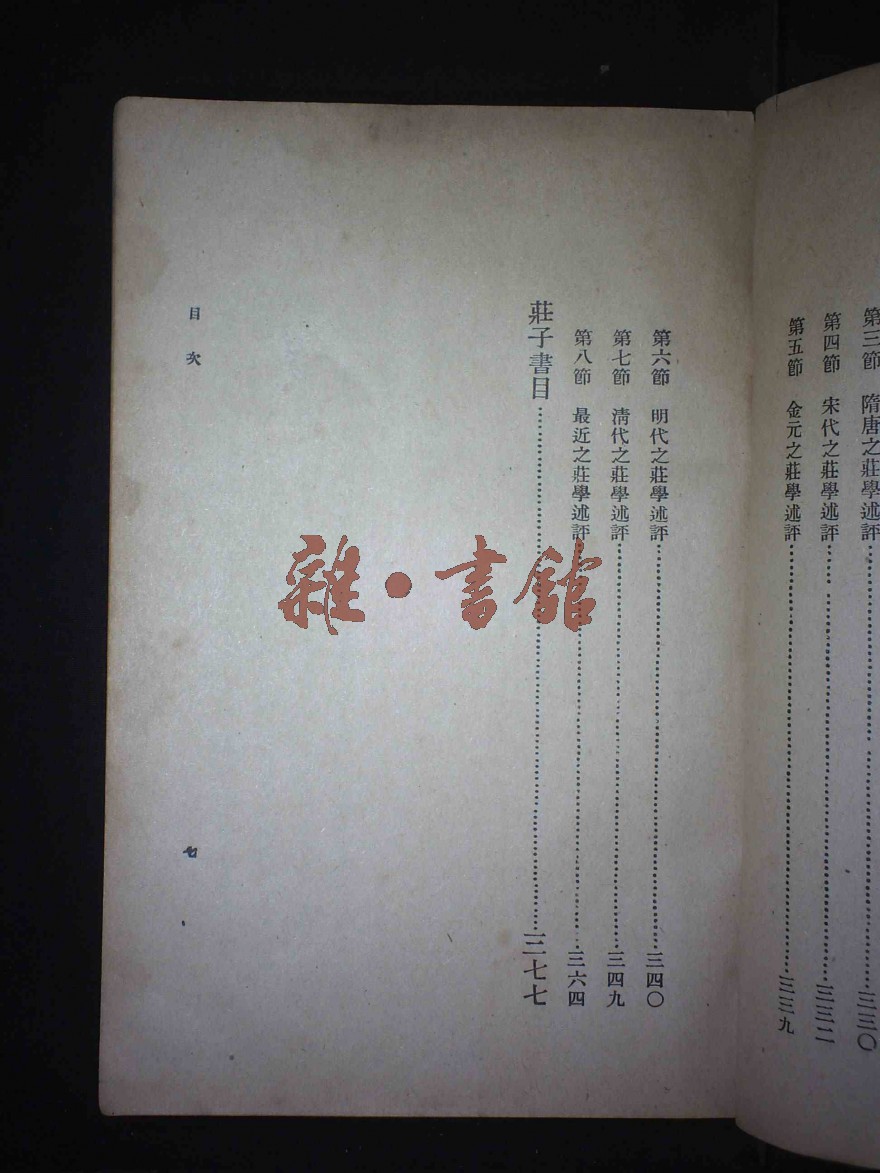 第三節　隋唐之莊學述評……三三〇
第四節　宋代之莊學述評……三三二
第五節　金元之莊學述評……三三九
第六節　明代之莊學述評……三四〇
第七節　清代之莊學述評……三四九
第八節　最近之莊學述評……三六四
莊子書目……三七七
目次
七
雜·書館